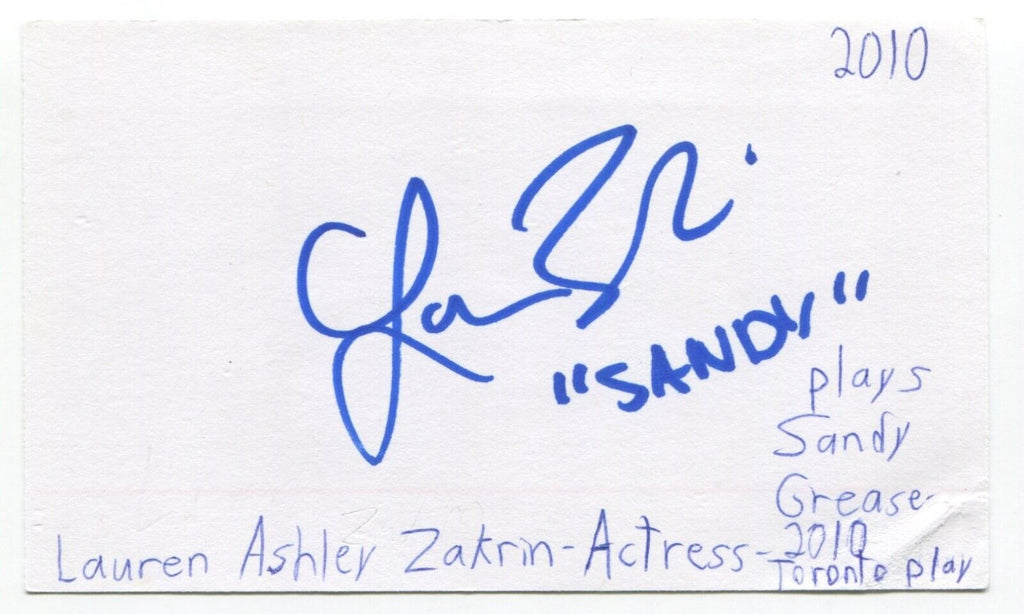 2010
"SANDY"
plays
Sandy
Grease-
2010
Lauren Ashley Zakrin-Actress-Toronto play